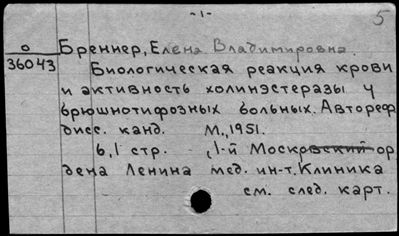 -1-
5
о
36043
Бреннер, Елена Владимировна.
Биологическая реакция крови
и активность холинэстеразы у
брюшнотифозных больных. Автореф
дисс. канд. М., 1951.
6,1 стр. , 1-й Московский ор
дена Ленина мед. ин-т. Клиника
см. след. карт.